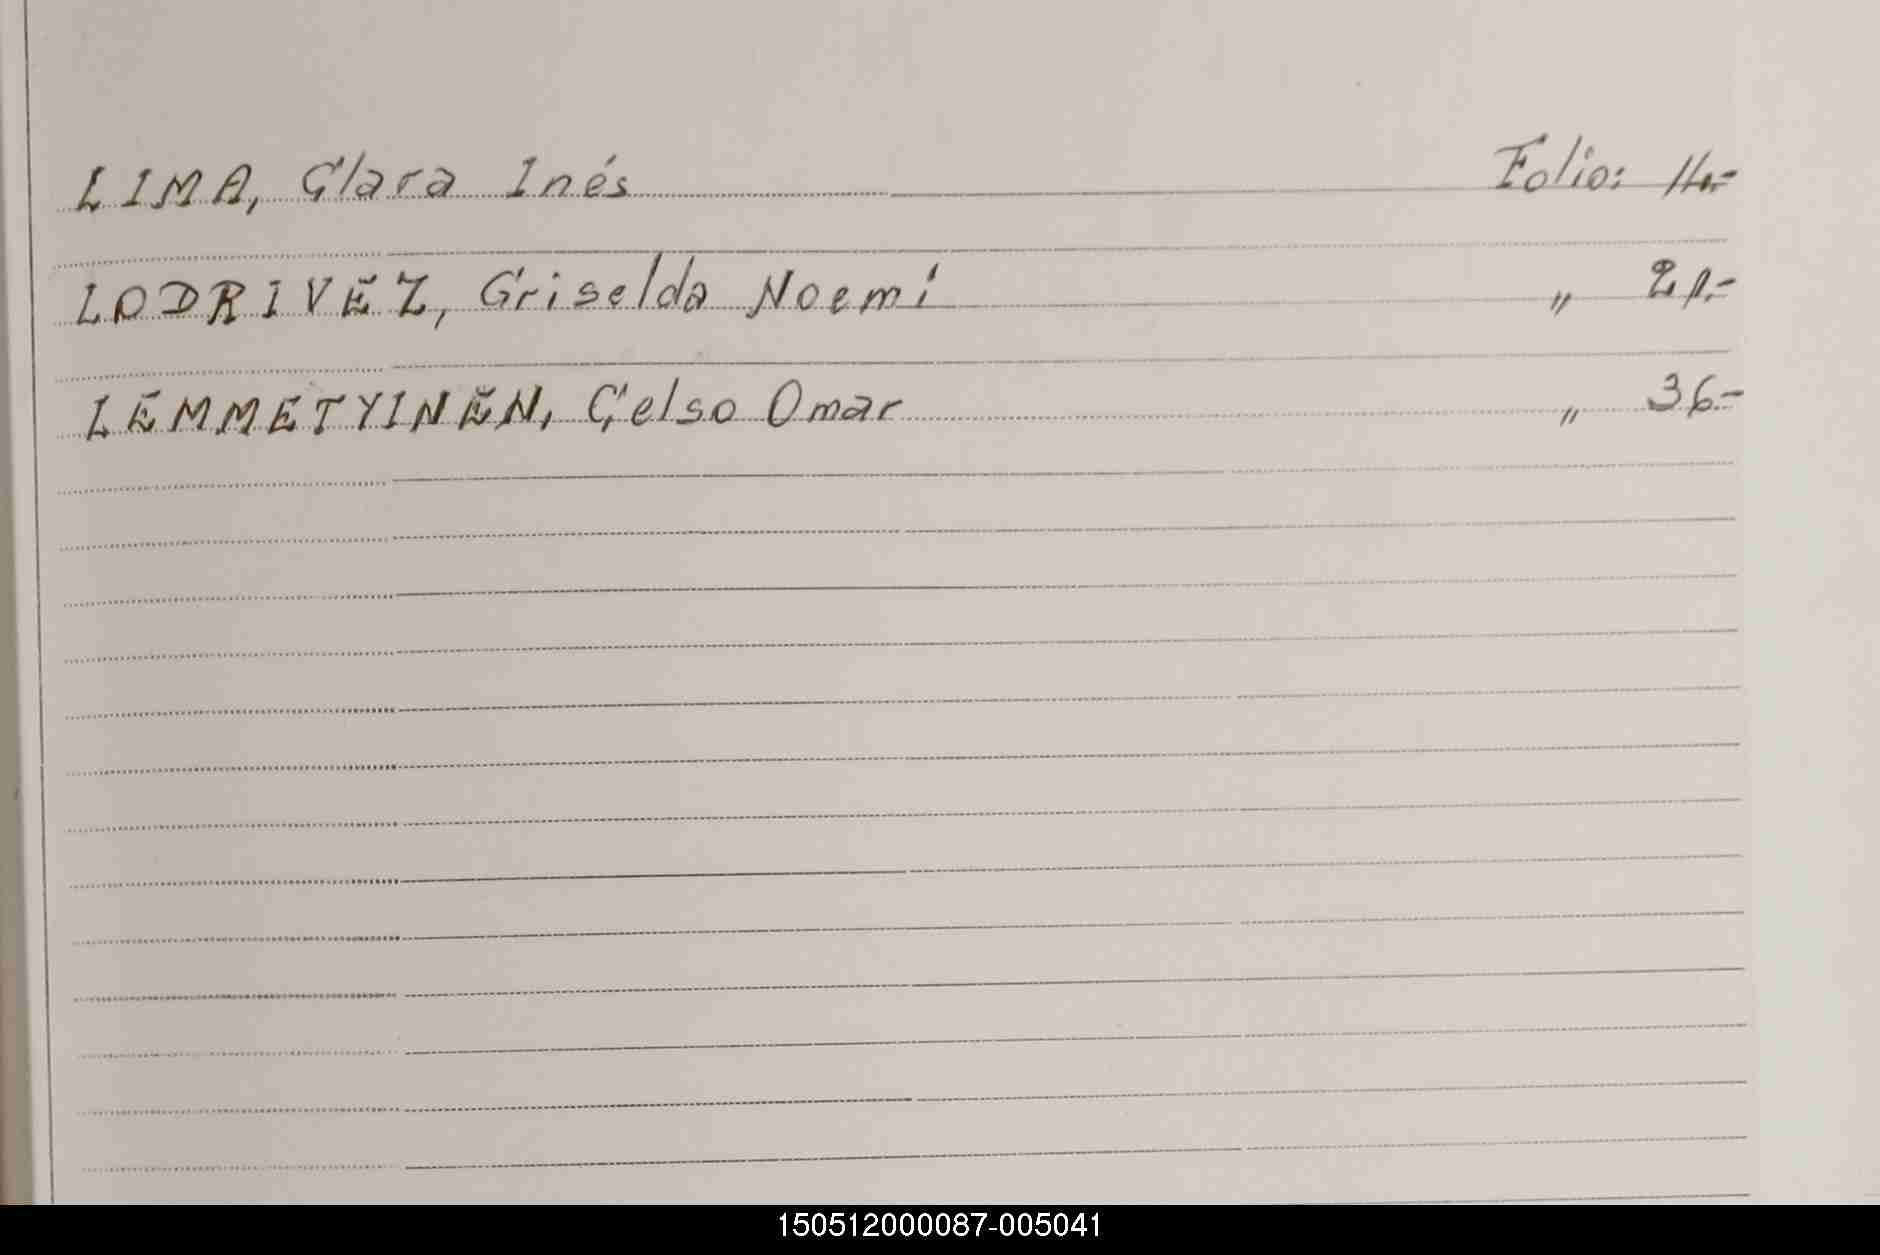 LIMA, Clara Inés Folio: 14.-
LODRIVEZ, Griselda Noemí " 21.-
LEMMETYINEN, Celso Omar " 36.-
150512000087-005041